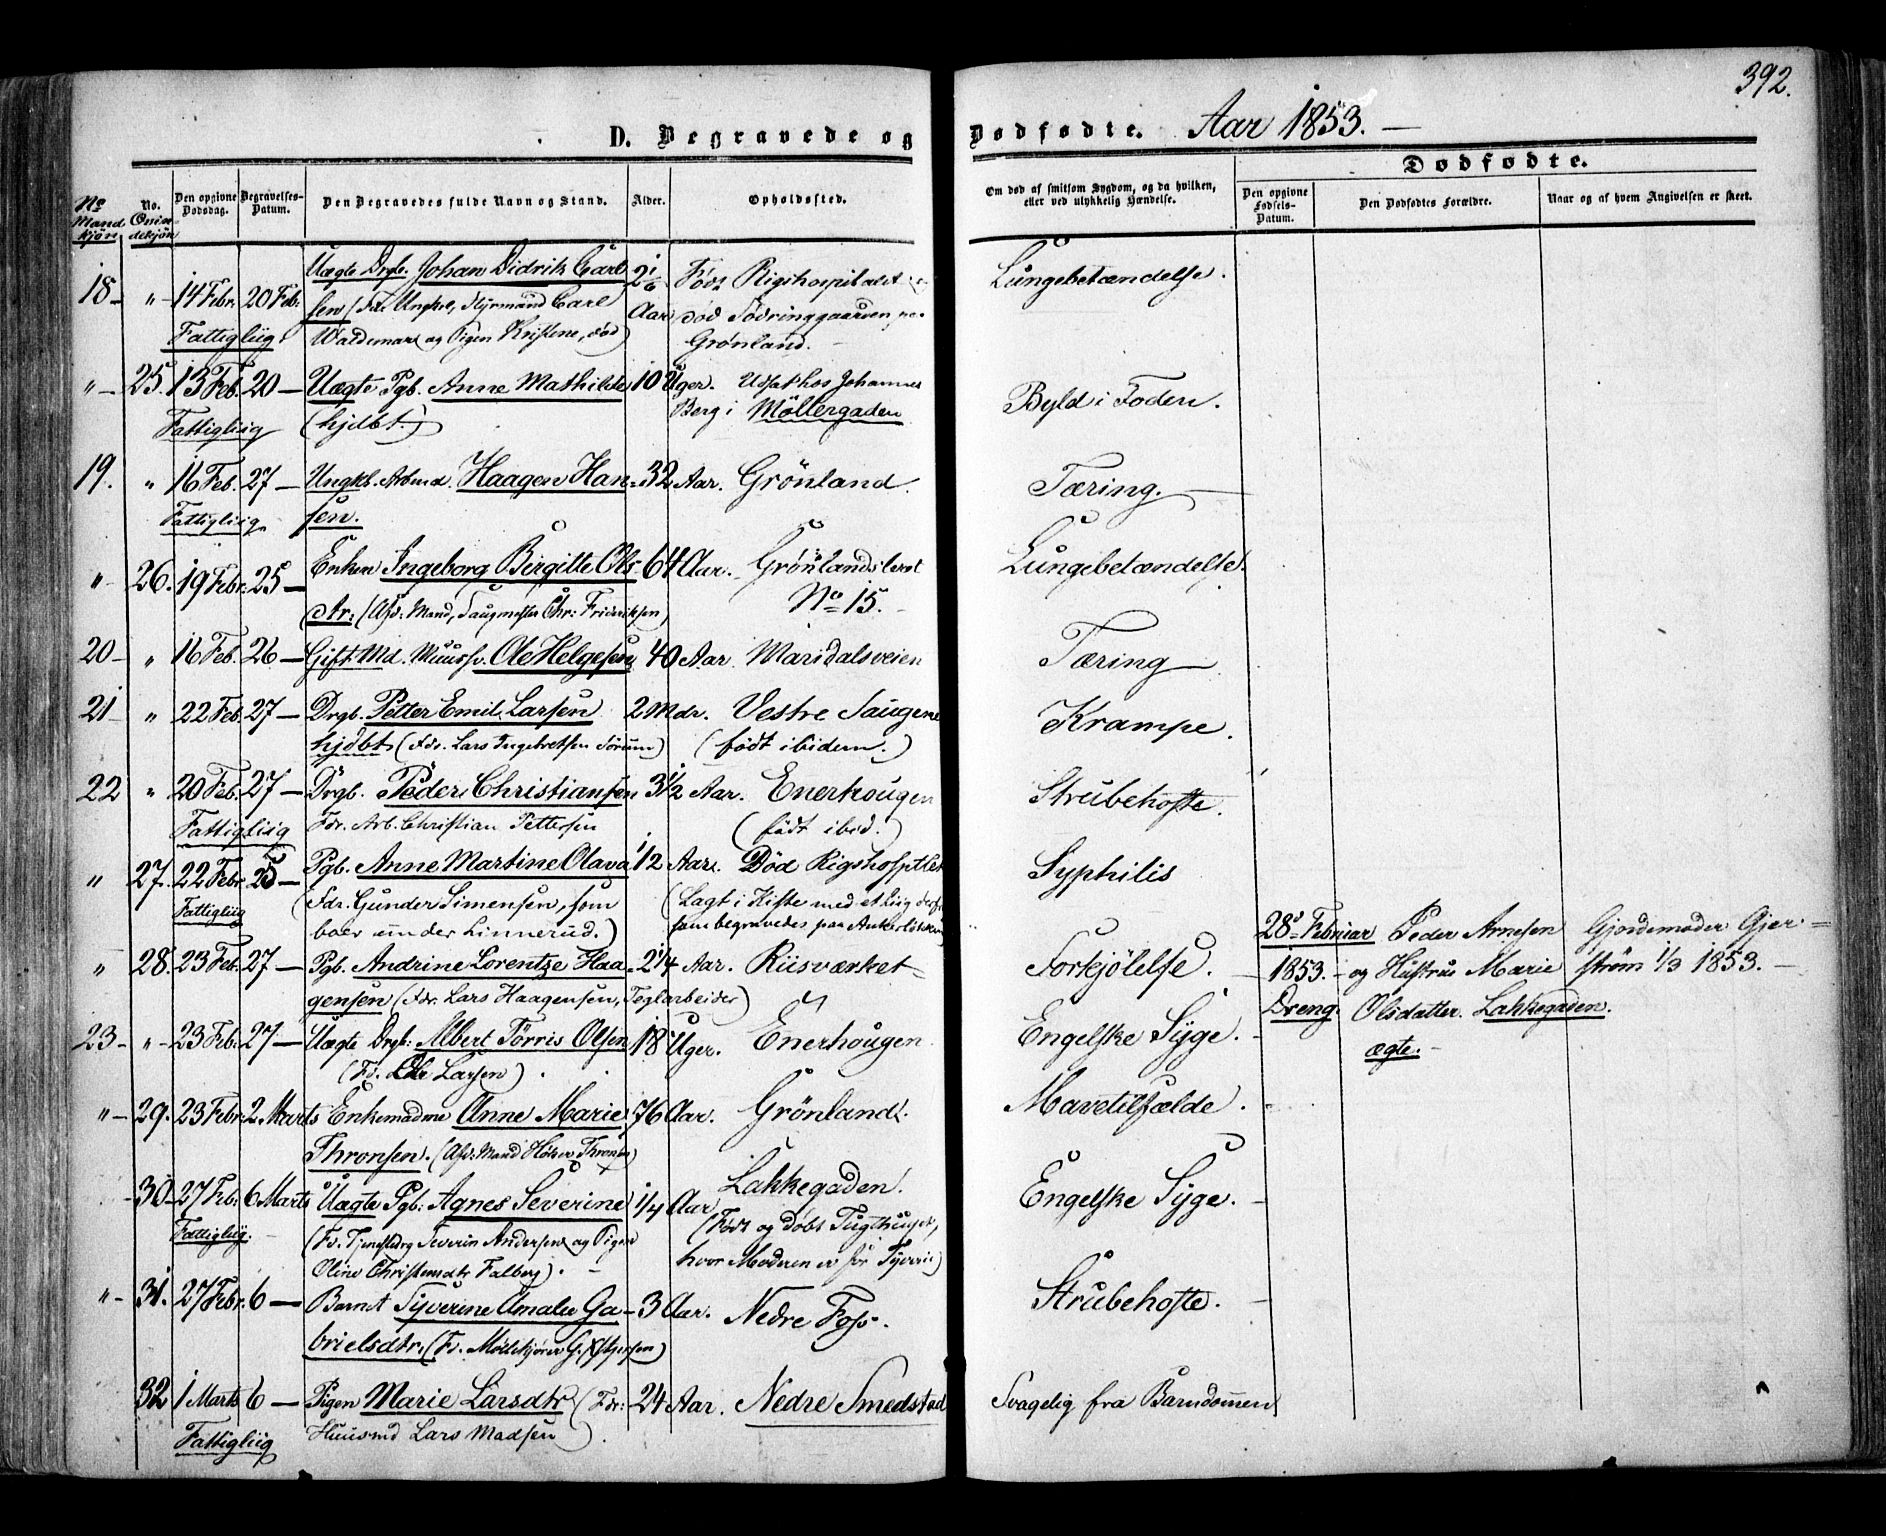 392.
D. Begravede og Dødfødte. Aar 1853. —
Dødfødte.
No Mandkjøn
No. Qvindekjøn
Den opgivne Dødsdag.
Begravelses-Datum.
Den Begravedes fulde Navn og Stand.
Alder.
Opholdssted.
Om død af smitsom Sygdom, og da hvilken, eller ved ulykkelig Hændelse.
Den opgivne Fødsels-Datum.
Den Dødfødtes Forældre.
Naar og af hvem Angivelsen er skeet.
18 – " 14 Febr. 20 Feb. Uægte Drgb. Johan Didrik Carl- 2 1/6 Født Rigshospitalet Lungebetændelse.
sen (Fa. Ungkl, Styrmand Carl Aar død Tødringgaarden paa
Fattigliig Waldemar og Pigen Kristene, død) Grønland. –
" – 25. 13 Feb. 20 — Uægte Pgb. Anne Mathilde 10 Uger. Udsat hos Johannes Byld i Foden.
Fattigliig (hjdbt.) Berg i Møllergaden
19. " 16 Feb. 27 — Ungkl. Arbmd. Haagen Han- 32 Aar. Grønland. Tæring. —
Fattigliig sen.
" 26. 19 Febr. 25 — Enken Ingeborg Birgitte Ols- 64 Aar. Grønlandsleret Lungebetændelse.
dtr: (Afd: Mand, Saugmester Chr: Frideriksen) No 15. –
20 – " 16 Feb. 26 — Gift Md. Muursv. Ole Helgesen 40 Aar. Maridalsveien Tæring —
21 – " 22 Feb. 27 — Drgb. Petter Emil Larsen 2 Mdr. Vestre Saugene Krampe.
hjdbt (Fdr. Lars Ingebretsen Sørum) (født ibidem.)
22 " 20 Feb. 27 — Drgb. Peder Christiansen 3 1/2 Aar. Enerhougen Strubehoste.
Fattigliig Fdr. Arb. Christian Pettersen (født ibid.)
" 27. 22 Febr. 25 — Pgb. Anne Martine Olava 1/2 Aar. Død Rigshospitlet Syphilis
Fattigliig (Fdr. Gunder Simensen, som (Lagt i Kiste med et Liig derfra
boer under Linnerud.) som begravedes paa Ankerløkken)
" 28. 23 Feb. 27 — Pgb. Andrine Lorentze Haa- 2 1/4 Aar. Riisværket – Forkjølelse. –
gensen (Fdr. Lars Haagensen, Teglarbeider)
28de Februar Peder Arnesen Gjordemoder Gjer-
1853. – og Hustrue Marie strøm 1/3 1853. –
Dreng. Olsdatter. Lakkegaden.
ægte. –
23 – " – 23 Feb. 27 — Uægte Drgb: Albert Tørris Olsen 18 Uger. Enerhougen. Engelske Syge. –
(Fd. Ole Larsen)
" – 29. 23 Febr. 2 Marts Enkemadme Anne Marie 76 Aar. Grønland. Mavetilfælde. –
Thronsen. (Afd: Mand Høker Thronsen)
30. 27 Feb. 6 Marts Uægte Pgb: Agnes Severine 1/4 Aar Lakkegaden. Engelske Syge. –
Fattigliig. – (Fd. Tjenestedrg Severin Andersen og Pigen (Født og døbt Tugthuset,
Oline Christensdtr Falberg). – hvor Moderen er for Tyverie)
" – 31. 27 Febr. 6 — Barnet Syverine Amalie Ga- 3 Aar. Nedre Foss. Strubehoste. –
brielsdtr. (Fd. Møllekjører G.
32 1 Marts 6 — Pigen Marie Larsdtr (Fdr: 24 Aar. Nedre Smedstad Svagelig fra Barndommen
Fattigliig Huusmd Lars Madsen).